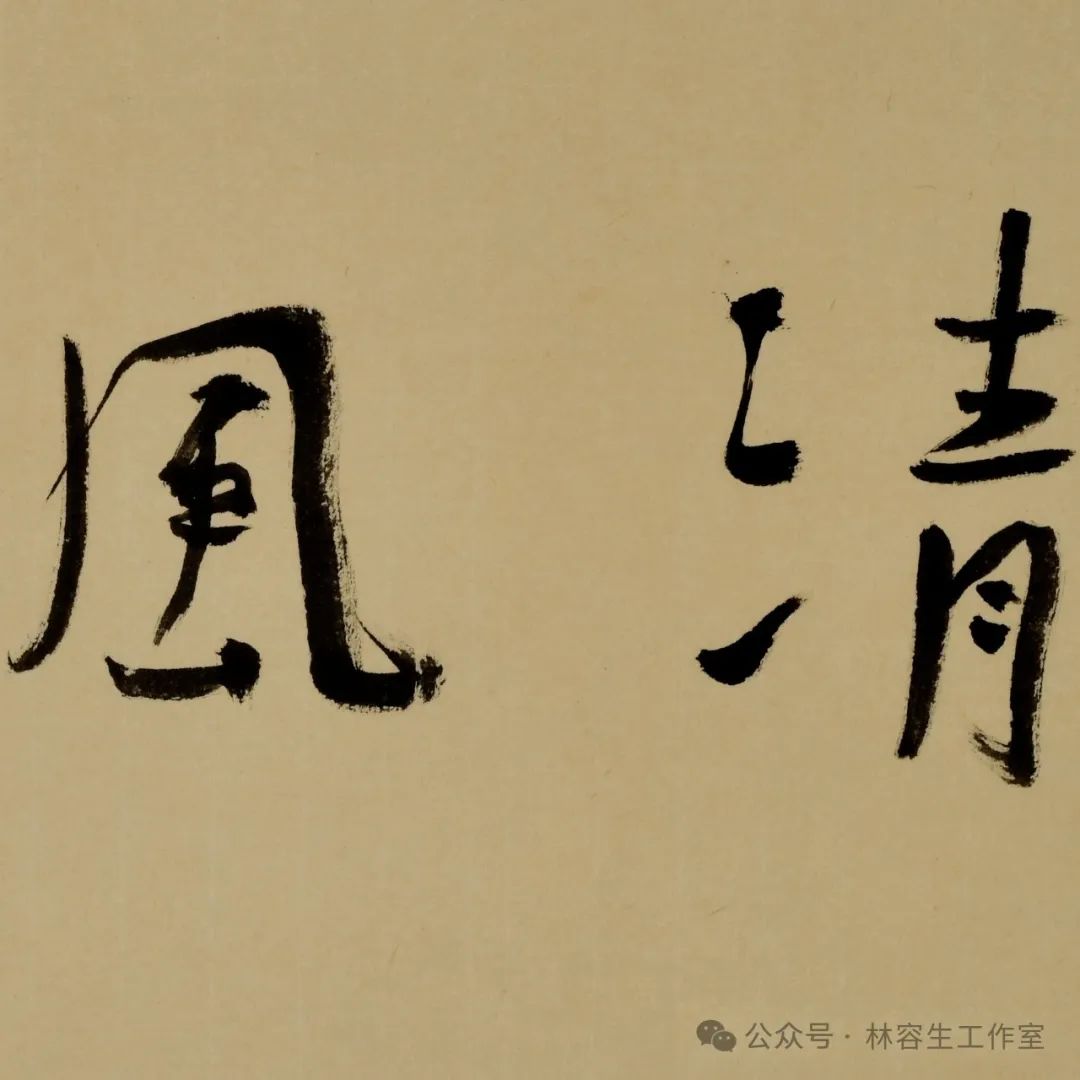 清風
公众号 · 林容生工作室